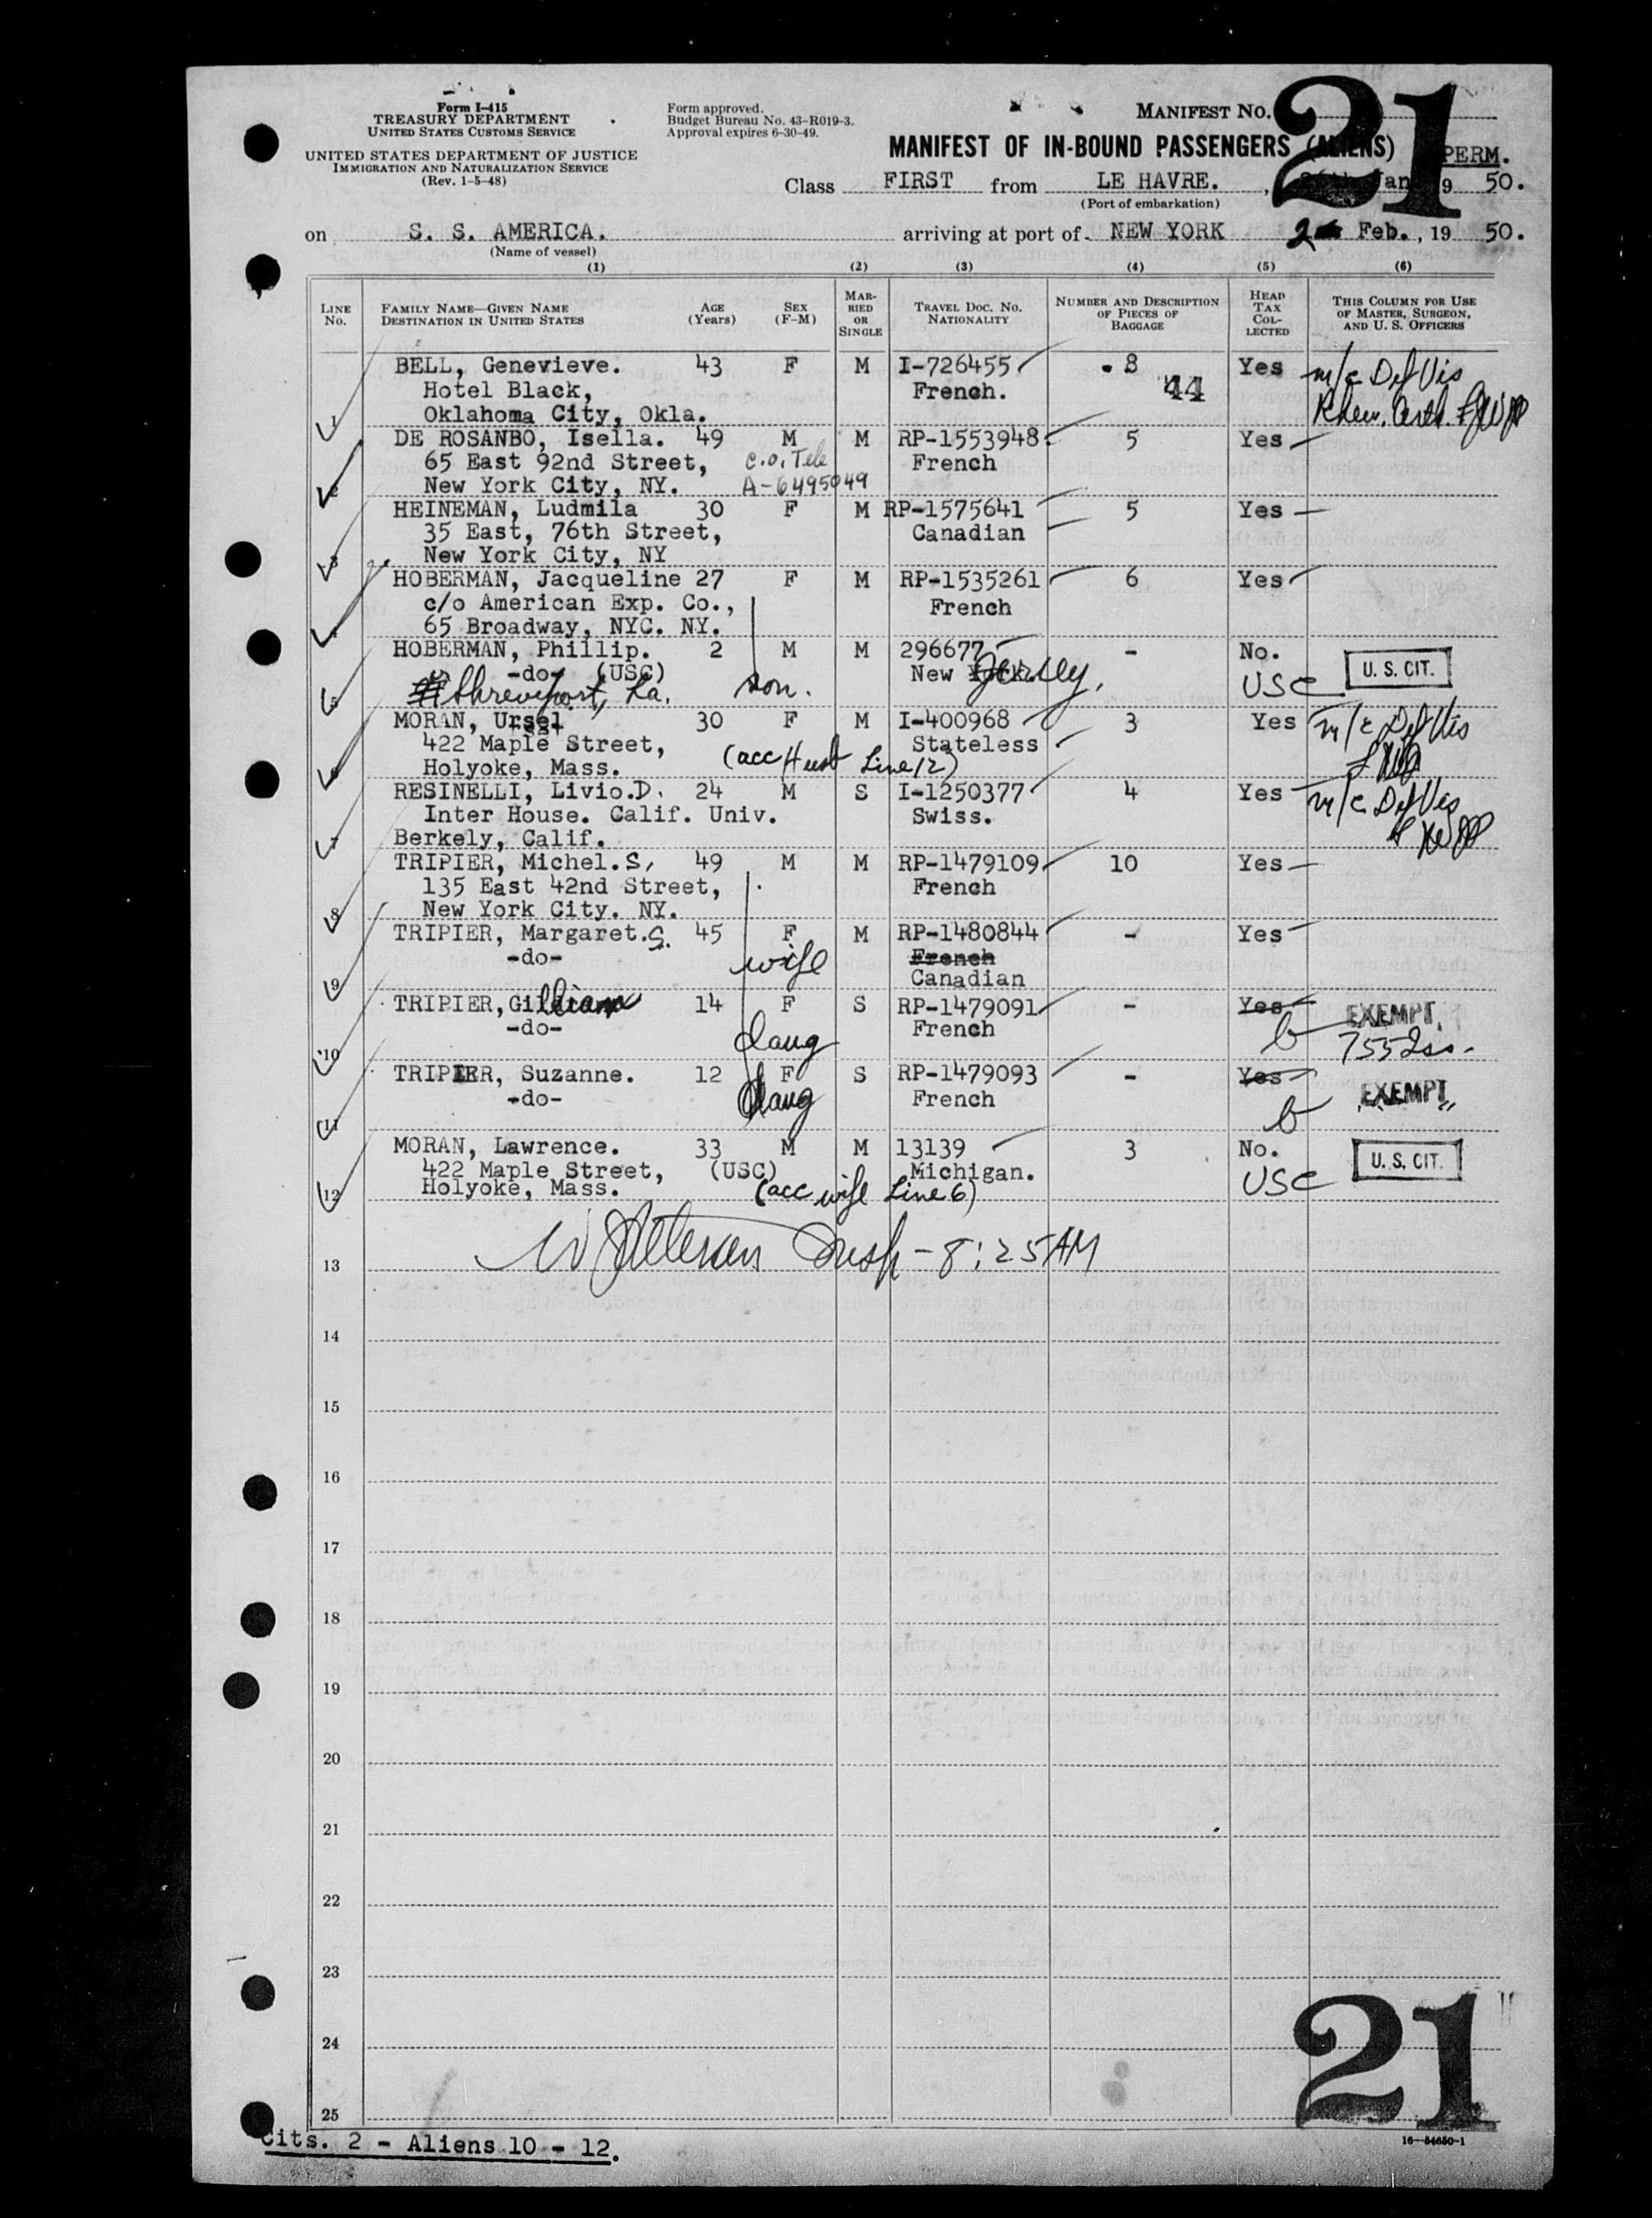 Form I-415
TREASURY DEPARTMENT
UNITED STATES CUSTOMS SERVICE
UNITED STATES DEPARTMENT OF JUSTICE
IMMIGRATION AND NATURALIZATION SERVICE
(Rev. 1-5-48)
Form approved.
Budget Bureau No. 43-R019-3.
Approval expires 6-30-49.
MANIFEST NO. 21
MANIFEST OF IN-BOUND PASSENGERS (ALIENS) PERM.
Class FIRST from LE HAVRE. , Jan 19 50.
(Port of embarkation)
on S. S. AMERICA. arriving at port of NEW YORK 2 Feb., 19 50.
(Name of vessel)
(1) (2) (3) (4) (5) (6)
LINE No. FAMILY NAME—GIVEN NAME DESTINATION IN UNITED STATES AGE (Years) SEX (F-M) MARRIED OR SINGLE TRAVEL DOC. NO. NATIONALITY NUMBER AND DESCRIPTION OF PIECES OF BAGGAGE HEAD TAX COLLECTED THIS COLUMN FOR USE OF MASTER, SURGEON, AND U. S. OFFICERS
BELL, Genevieve. 43 F M I-726455 8 Yes m/c Def Vis
Hotel Black, French. 44
1 Oklahoma City, Okla.
DE ROSANBO, Isella. 49 M M RP-1553948 5 Yes
65 East 92nd Street, c.o. Tele French
2 New York City, NY. A-6495049
HEINEMAN, Ludmila 30 F M RP-1575641 5 Yes
35 East, 76th Street, Canadian
3 New York City, NY
HOBERMAN, Jacqueline 27 F M RP-1535261 6 Yes
c/o American Exp. Co., French
4 65 Broadway, NYC. NY.
HOBERMAN, Phillip. 2 M M 296677 - No. U. S. CIT.
-do- (USC) New York Jersey, USC
5 Shreveport, La. son.
MORAN, Ursel 30 F M I-400968 3 Yes m/c Def Vis
422 Maple Street, Stateless
6 Holyoke, Mass. (acc Husb Line 12)
RESINELLI, Livio.D. 24 M S I-1250377 4 Yes m/c Def Vis
Inter House. Calif. Univ. Swiss.
7 Berkely, Calif.
TRIPIER, Michel.S, 49 M M RP-1479109 10 Yes
135 East 42nd Street, French
8 New York City. NY.
TRIPIER, Margaret.S. 45 F M RP-1480844 - Yes
-do- wife French
9 Canadian
TRIPIER, Gilliane 14 F S RP-1479091 - Yes EXEMPT
-do- French
10 daug b
TRIPIER, Suzanne. 12 F S RP-1479093 - Yes
-do- daug French EXEMPT
11 b
MORAN, Lawrence. 33 M M 13139 3 No. U. S. CIT.
422 Maple Street, (USC) Michigan. USC
12 Holyoke, Mass. (acc wife Line 6)
13 Insp - 8:25 AM
14
15
16
17
18
19
20
21
22
23
24
25
21
Cits. 2 - Aliens 10 - 12.
16—54650-1